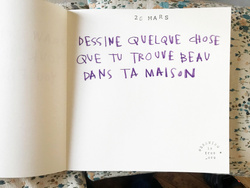 22 MARS
DESSINE QUELQUE CHOSE
QUE TU TROUVE BEAU
DANS TA MAISON